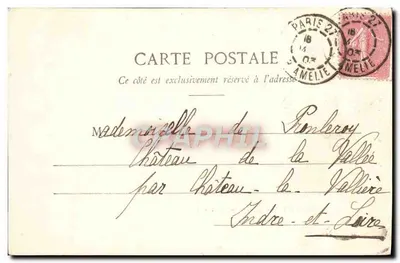 CARTE POSTALE
Ce côté est exclusivement réservé à l'adresse
PARIS 27
18
03
AMELIE
PARIS 27
18
03
AMELIE
CPAPHIL
Mademoiselle de Pronleroy
Château de la Vallée
par Château-la-Vallière
Indre-et-Loire